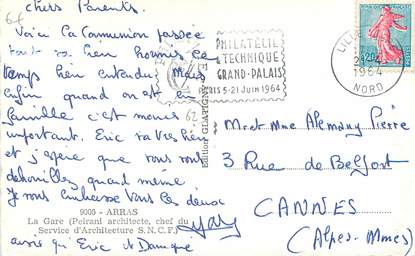 64
chers Parents.
Voici la Communion passée
tout va bien hormis ce
temps bien entendu. Mais
enfin quand on est en
famille c'est moins
important. Eric va très bien
et j'espère que vous vous
débrouillez quand même
Je vous embrasse tous les deux
9005 - ARRAS
La Gare (Peirani architecte, chef du
Service d'Architecture S.N.C.F.)
ainsi qu'Eric et Danique
Edition GLATIGNY
PHILATÉLIE
& TECHNIQUE
GRAND-PALAIS
PARIS 5-21 JUIN 1964
LILLE
1964
NORD
0,20
POSTES
M. et Mme Alemany Pierre
3 Rue de Belfort
CANNES
(Alpes-Mmes)